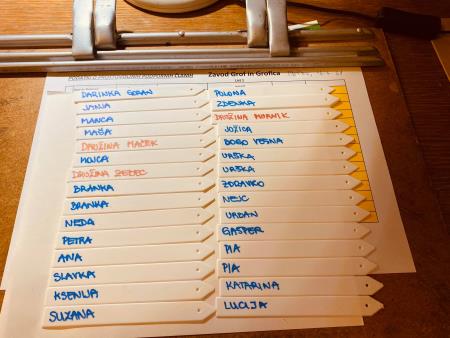 PODATKI O PROSTOVOLJNIH PODPORNIH ČLANIH
Zavod Grof in Grofica
DARINKA
JANJA
MANCA
MAŠA
DRUŽINA MAČEK
MOJCA
DRUŽINA
BRANKA
BRANKA
NEDA
PETRA
ANA
SLAVKA
KSENIJA
SUZANA
POLONA
ZDENKA
DRUŽINA
JOŽICA
BOBO VESNA
URŠKA
URŠKA
ZDRAVKO
NEJC
URBAN
GAŠPER
PIA
PIA
KATARINA
LUCIJA